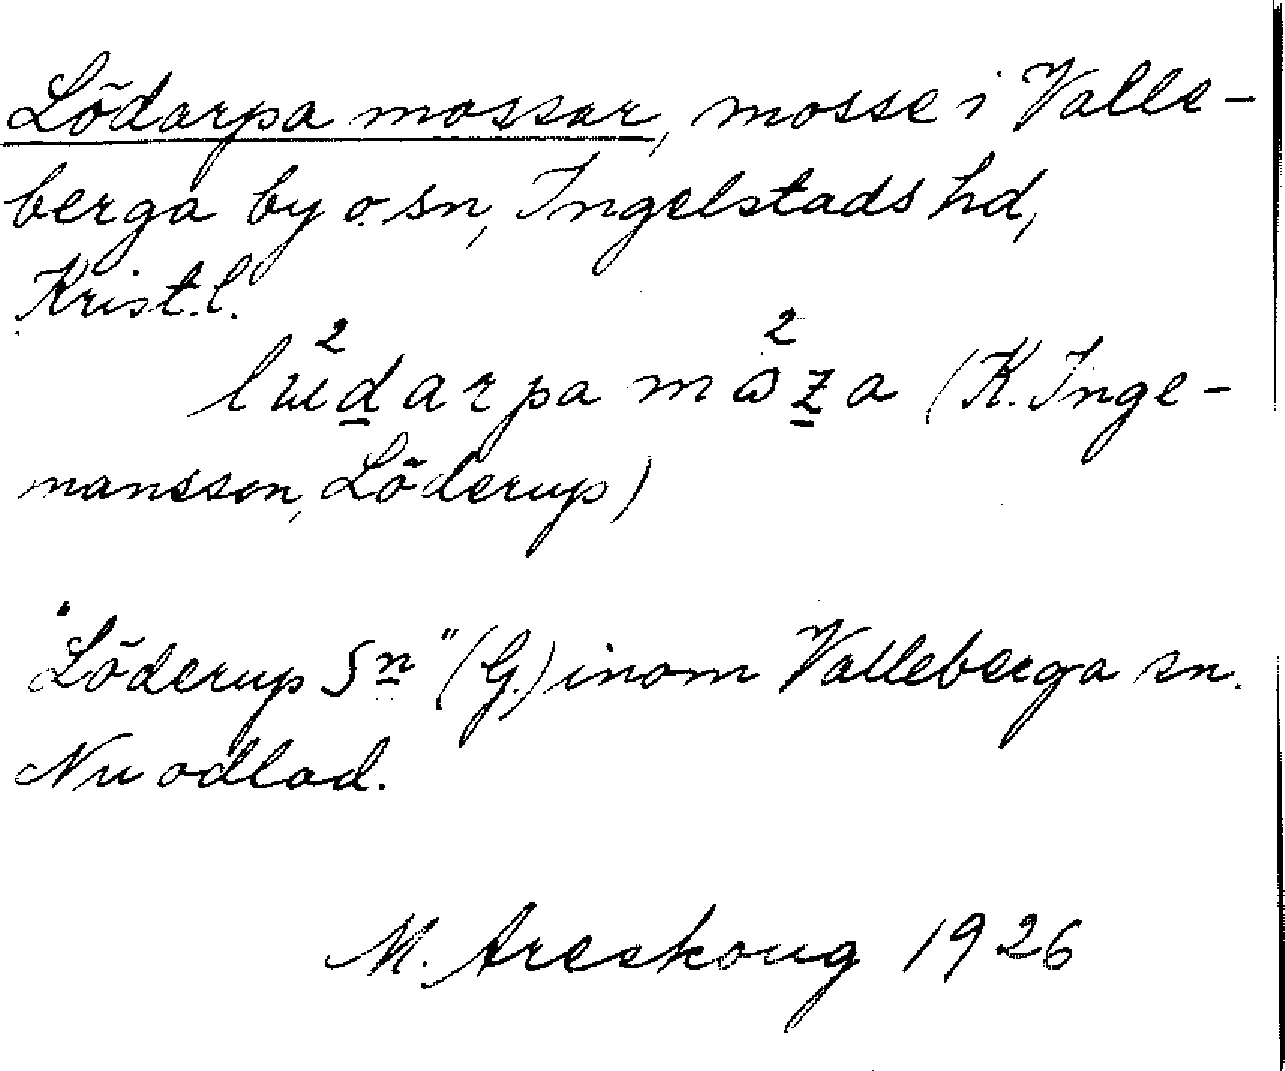 Lödarpa mossar, mosse i Valle-
berga by o. sn, Ingelstads hd,
Krist. l.
(K. Inge-
mansson, Löderup)
"Löderup Sn" (G.) inom Valleberga sn.
Nu odlad.
M. Areskoug 1926